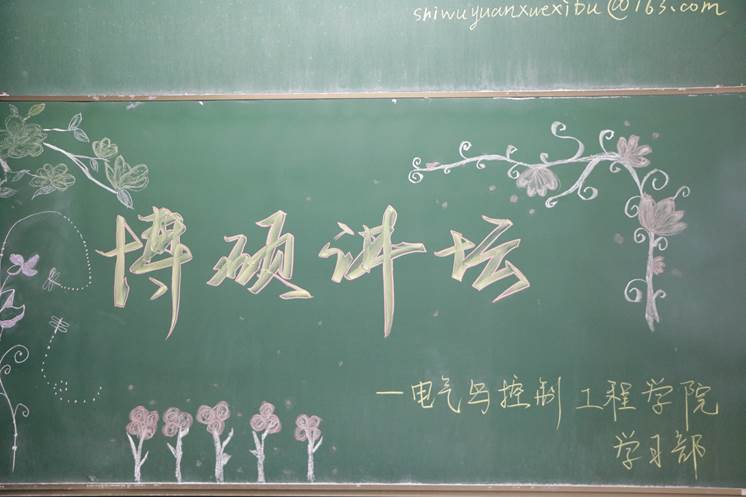 shiwuyuanxuexibu@163.com
博硕讲坛
一电气与控制工程学院
学习部